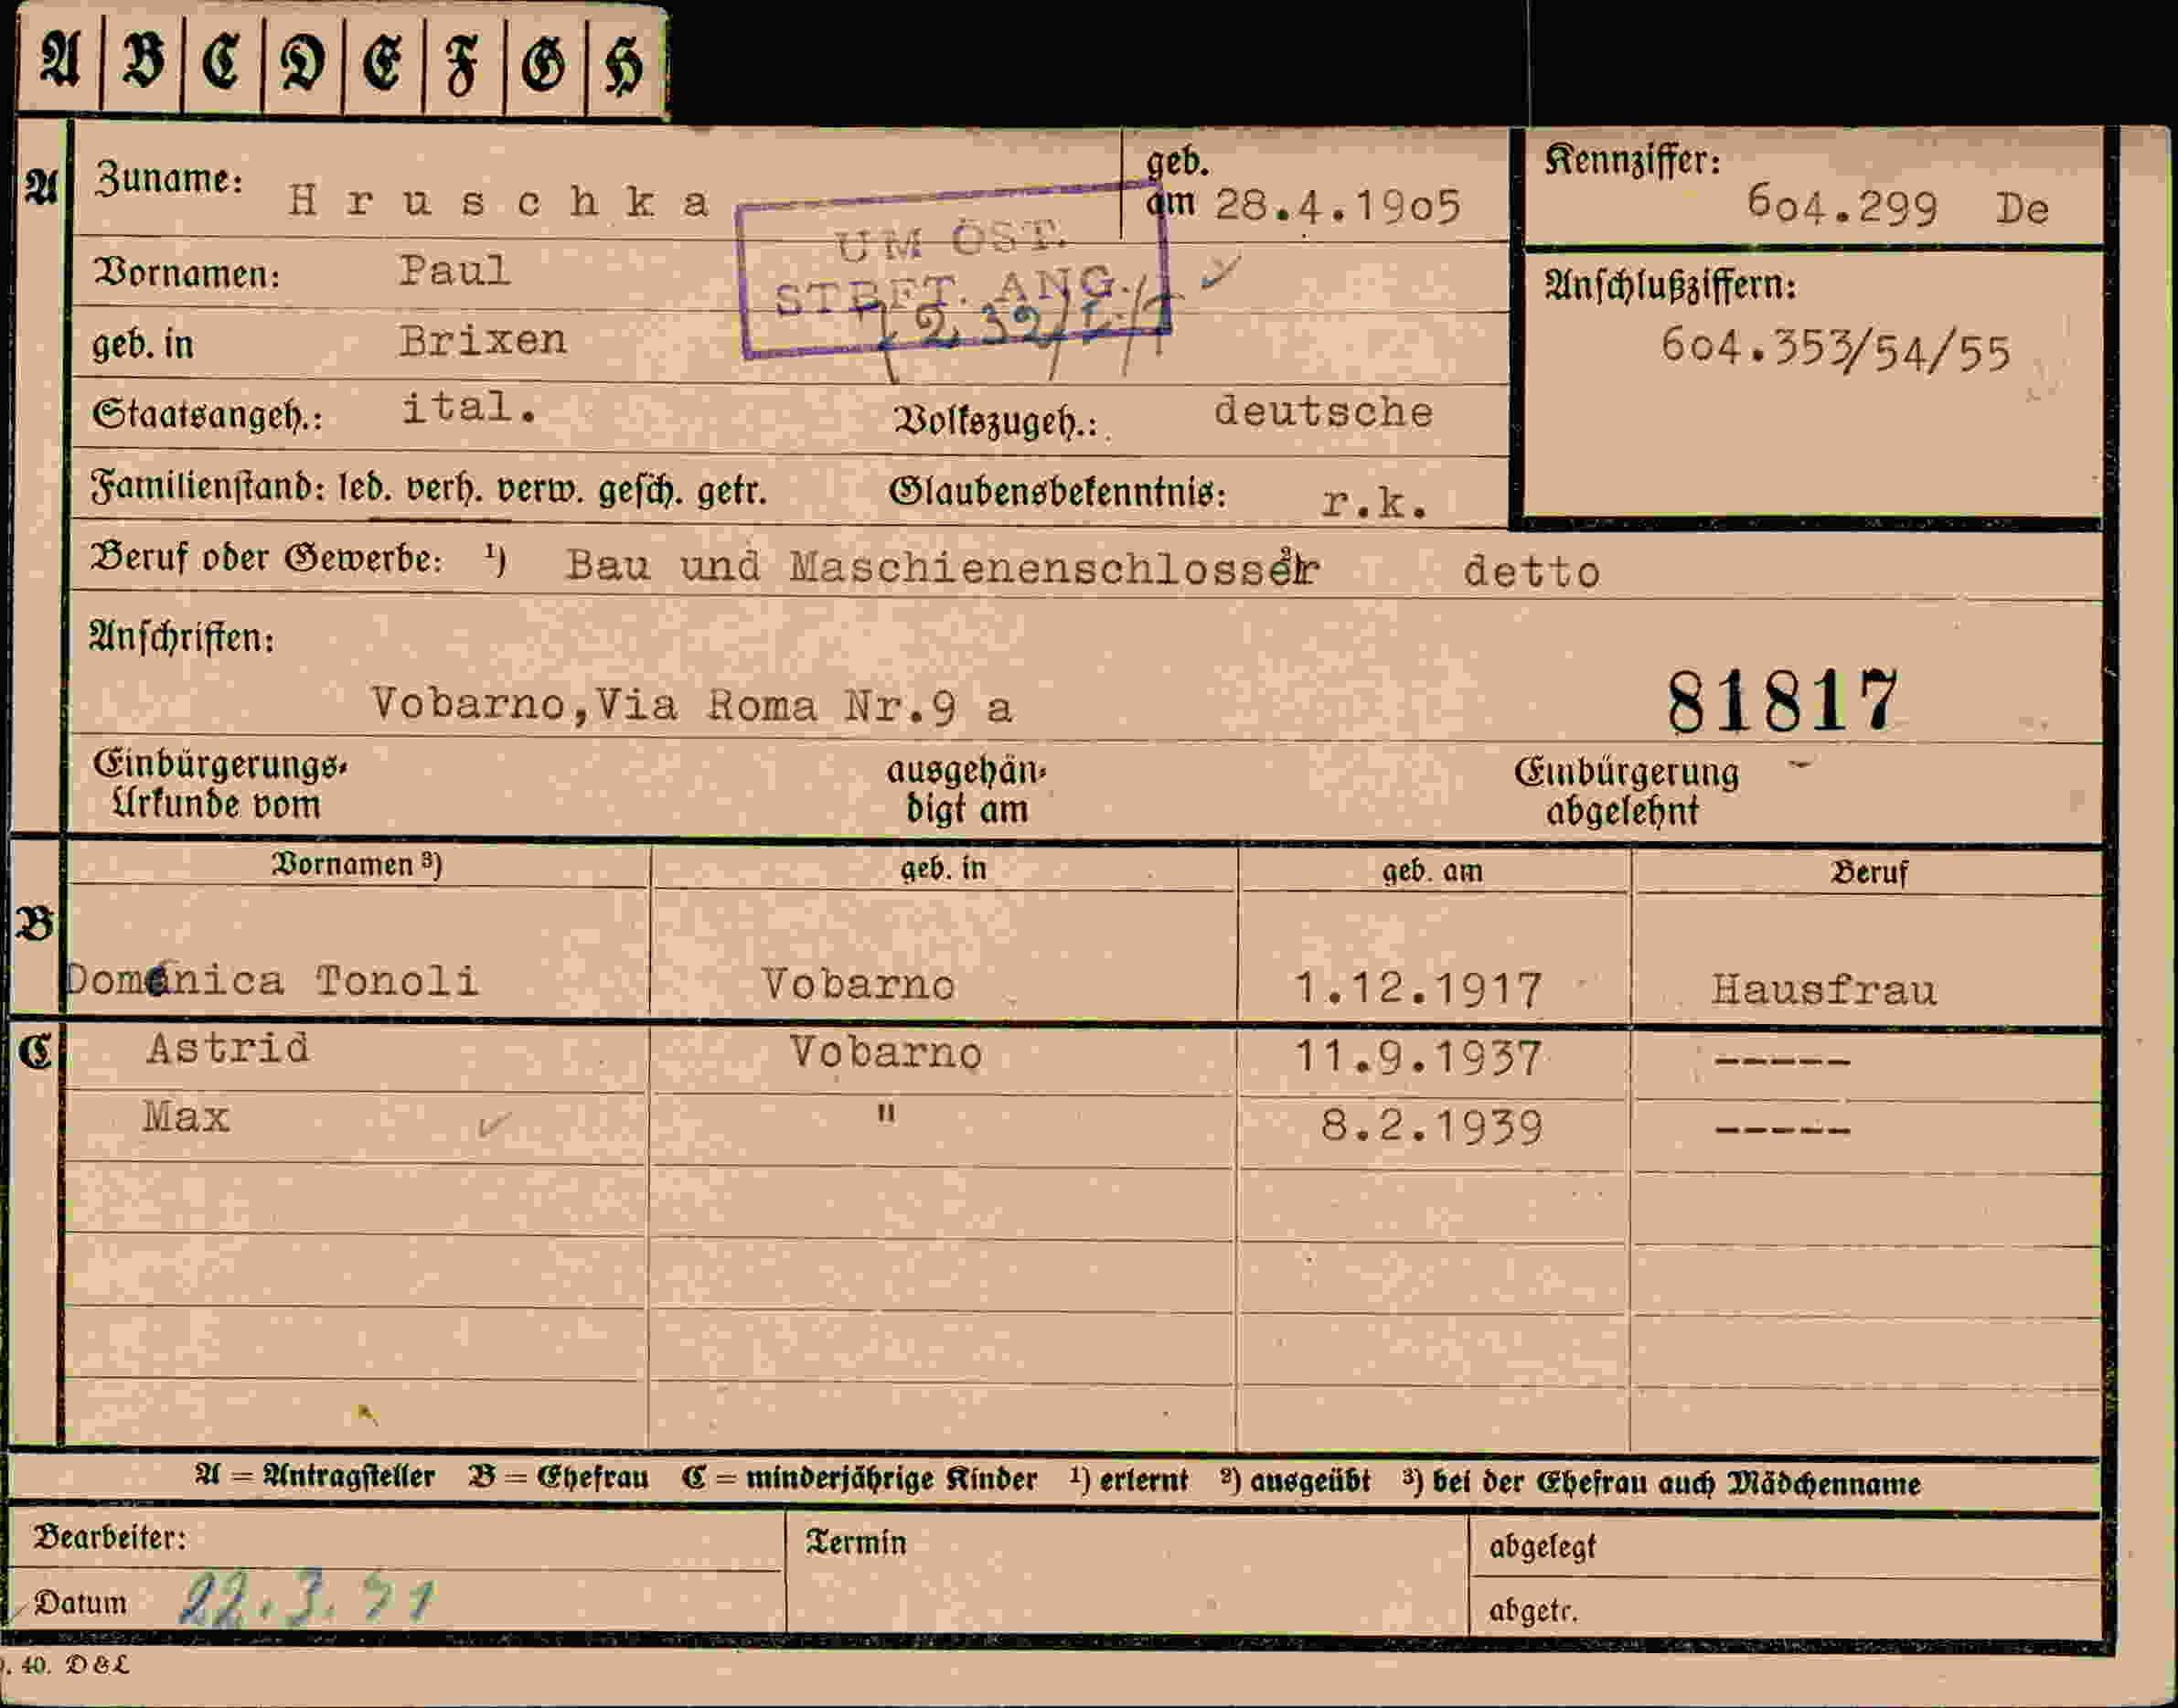 A B C D E F G H
A Zuname: Hruschka geb. am 28.4.1905 Kennziffer: 604.299 De
UM ÖST.
STBFT. ANG.
Vornamen: Paul
Anschlußziffern:
604.353/54/55
geb. in Brixen
Staatsangeh.: ital. Volkszugeh.: deutsche
Familienstand: led. verh. verw. gesch. getr. Glaubensbekenntnis: r.k.
Beruf oder Gewerbe: ¹) Bau und Maschienenschlosser detto
Anschriften:
Vobarno,Via Roma Nr.9 a 81817
Einbürgerungs-Urkunde vom ausgehändigt am Einbürgerung abgelehnt -
Vornamen ³) geb. in geb. am Beruf
B
Domenica Tonoli Vobarno 1.12.1917 Hausfrau
C Astrid Vobarno 11.9.1937 -----
Max " 8.2.1939 -----
A = Antragsteller B = Ehefrau C = minderjährige Kinder ¹) erlernt ²) ausgeübt ³) bei der Ehefrau auch Mädchenname
Bearbeiter: Termin abgelegt
Datum 22.3.41 abgetr.
40. D & L